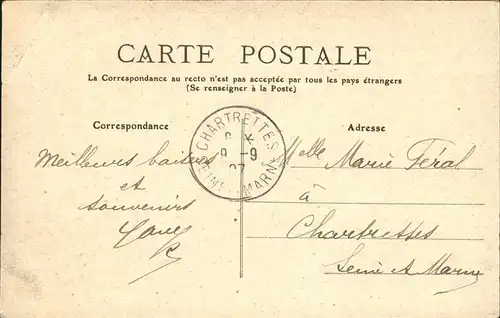 CARTE POSTALE
La Correspondance au recto n'est pas acceptée par tous les pays étrangers
(Se renseigner à la Poste)
Correspondance
Meilleurs baisers
et
souvenirs
CHARTRETTES
9 -9
07
SEINE-ET-MARNE
Adresse
Melle Marie Féral
à
Chartrettes
Seine et Marne